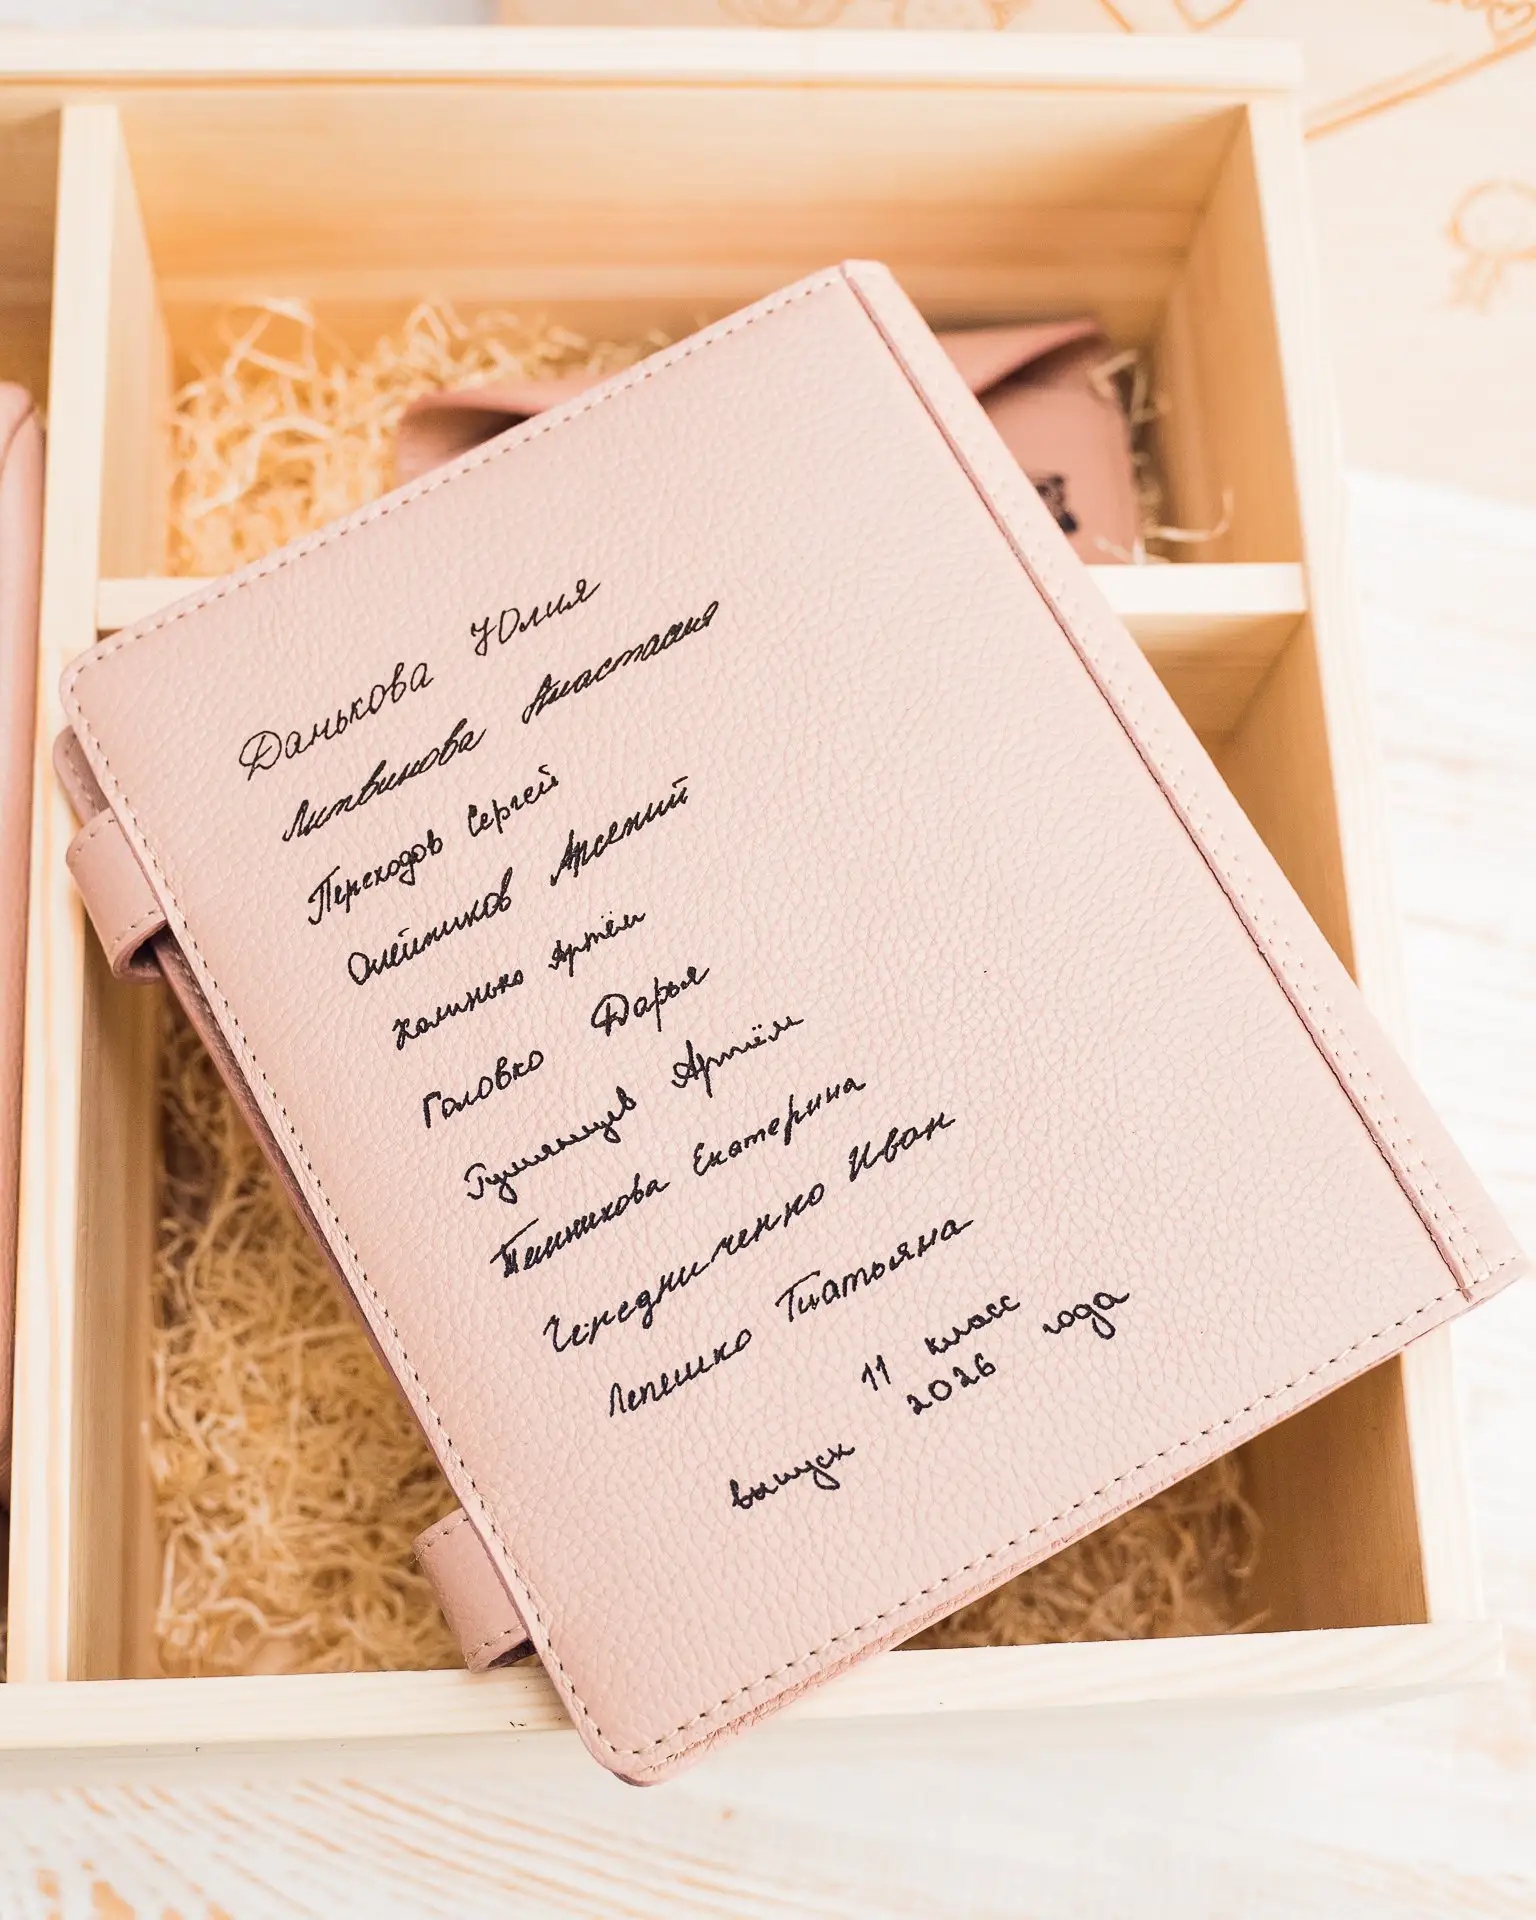 Данькова Юлия
Литвинова Анастасия
Переходов Сергей
Олейников Арсений
Калинько Артём
Головко Дарья
Румянцев Артём
Темникова Екатерина
Чередниченко Иван
Лепешко Татьяна
11 класс
выпуск 2026 года